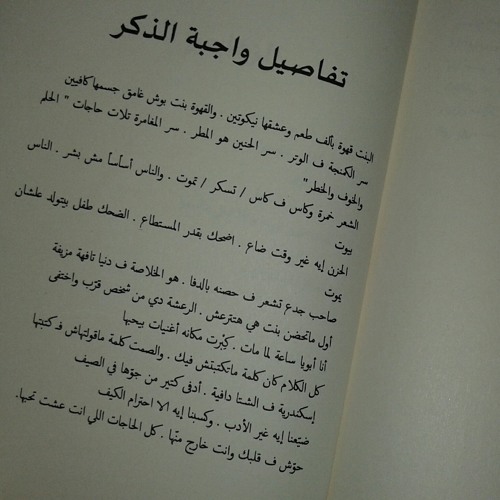 تفاصيل واجبة الذكر
البنت قهوة بألف طعم وعشقها نيكوتين . والقهوة بنت بوش غامق جسمها كافيين
سر الكنجة ف الوتر . سر الحنين هو المطر . سر المغامرة تلات حاجات " الحلم
والخوف والخطر"
الشعر خمرة وكاس ف كاس / تسكر / تموت . والناس أساساً مش بشر . الناس
بيوت
الحزن إيه غير وقت ضاع . اضحك بقدر المستطاع . الضحك طفل بيتولد علشان
يموت
صاحب جدع تشعر ف حضنه بالدفا . هو الخلاصة ف دنيا تافهة مزيفة
أول ماتحضن بنت هي هتترعش . الرعشة دي من شخص قرّب واختفى
أنا أبويا ساعة لما مات . كبْرت مكانه أغنيات بيحبها
كل الكلام كان كلمة ماتكتبتش فيك . والصمت كلمة ماقولتهاش فـ كتبتها
إسكندرية ف الشتا دافية . أدفى كتير من جوّها في الصيف
ضيّعنا إيه غير الأدب . وكسبنا إيه الا احترام الكيف
حوّش ف قلبك وانت خارج منّها . كل الحاجات اللي انت عشت تحبها.